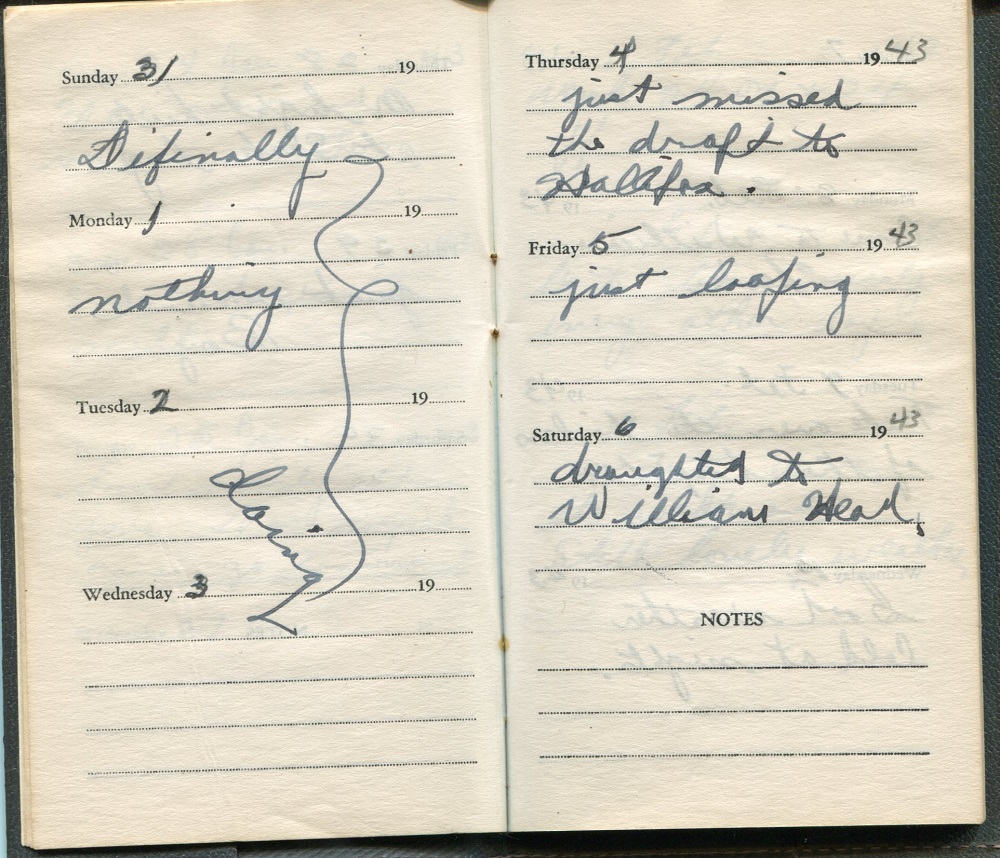 Sunday 31 19
Difinally
Monday 1 19
nothing
Tuesday 2 19
Doing
Wednesday 3 19
Thursday 4 1943
just missed
the draft to
Halifax.
Friday 5 1943
just loafing
Saturday 6 1943
draughted to
William Head,
NOTES